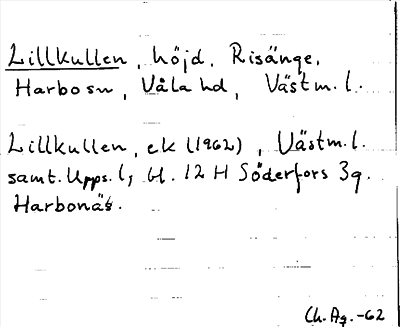 Lillkullen, höjd, Risänge,
Harbo sn, Våla hd, Västm. l.
Lillkullen, ek (1962), Västm. l.
samt. Upps. l, bl. 12 H Söderfors 3g.
Harbonäs.
Ch. Ag. -62